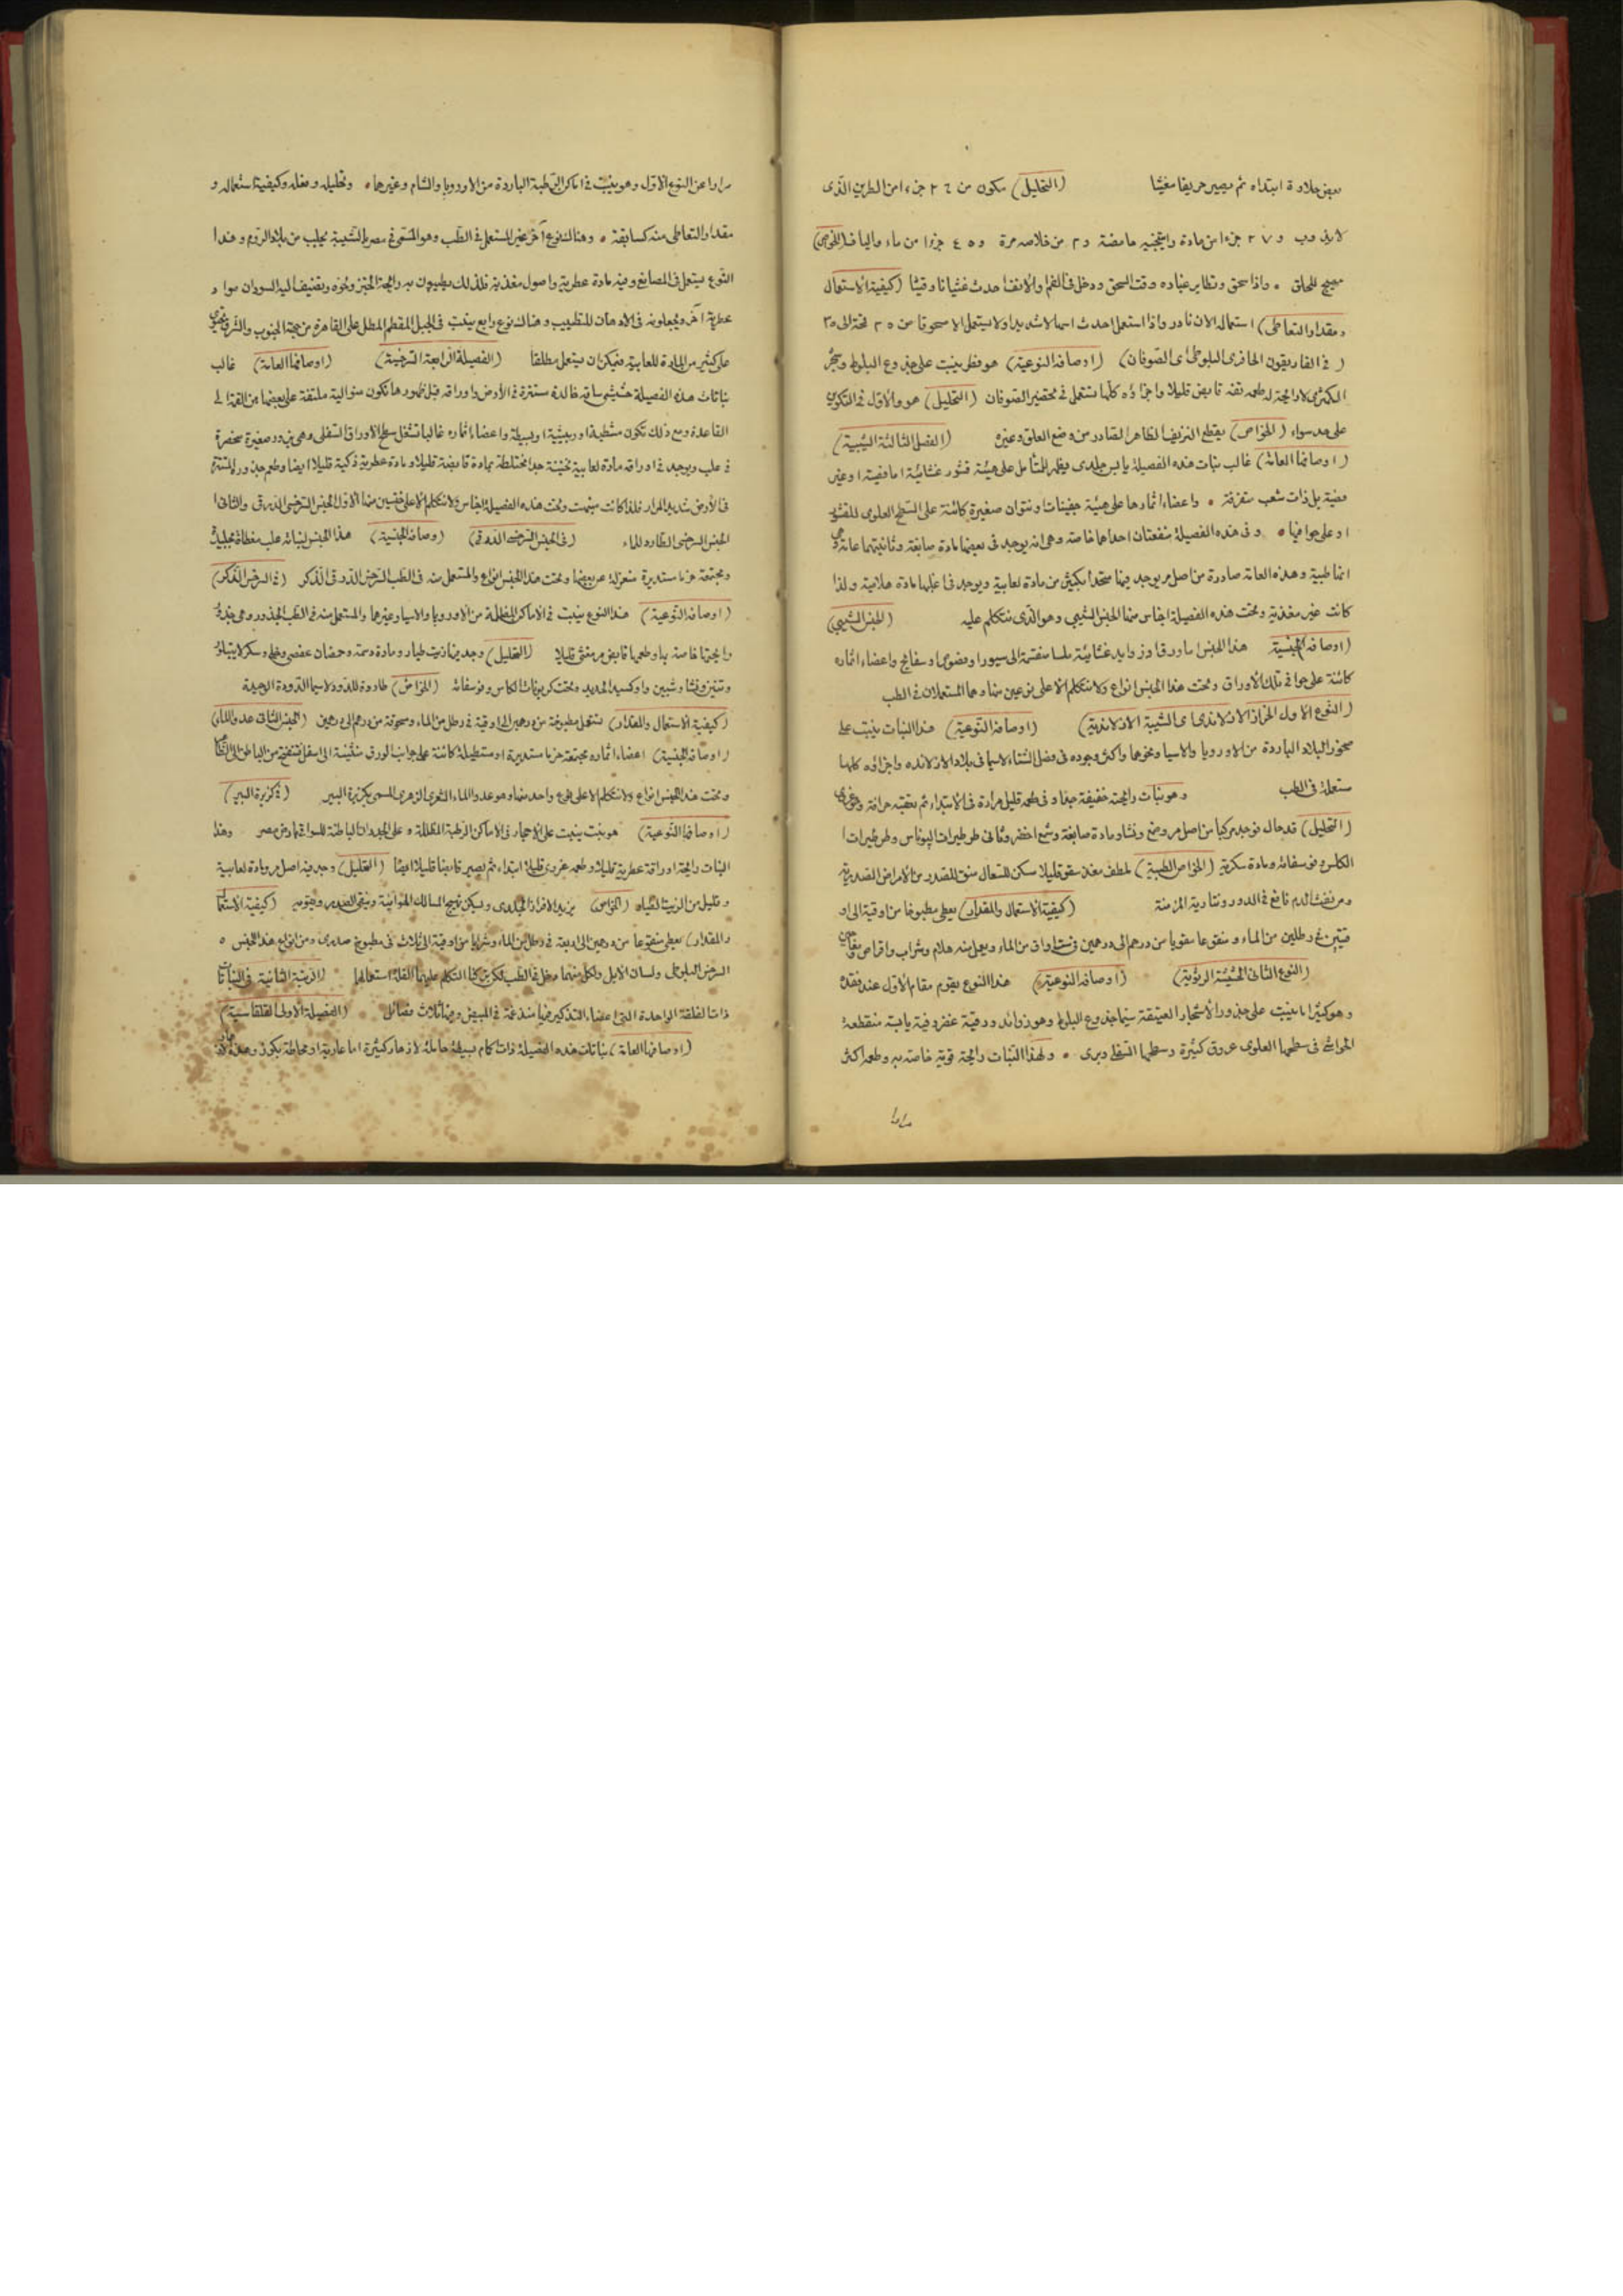 بعض حلاوة ابتداء ثم يصير حريفا مغثيا (التحليل) مكون من ٢٤ جزءا من الطرين الذى
لا يذوب و ٢٧ جزءا من مادة حامضة و ٢ من خلاصة مرة و ٤٥ جزءا من ماء والياف (الخواص)
مهيج للحلق واذا سحق وتطاير غباره وقت السحق ودخل فى الفم والانف احدث غثيانا وقيئا (كيفية الاستعمال
ومقدار التعاطى) استعماله الان نادر واذا استعمل احدث اسهالا شديدا ولا يستعمل الا مسحوقا من ٢٥ قمحة الى ٣٥
(فى الغاريقون الحافرى البلوطى اى الصوفان) (اوصافه النوعية) هو فطر ينبت على جذوع البلوط وشجر
الكمثرى لا رائحة له طعمه تفه قابض قليلا واجزاؤه كلها تستعمل فى تحضير الصوفان (التحليل) هو والاول فى التكوين
على حد سواء (الخواص) يقطع النزيف الظاهر الصادر من وضع العلق وغيره (الفصل الثالثة الشيبية)
(اوصافها العامة) غالب نبات هذه الفصيلة يابس جلدى يظهر للمتأمل على هيئة قشور غشائية اما فصية او غير
فصية بل ذات شعب متفرقة واعضاء اثمارها على هيئة جفينات او نتوات صغيرة كائنة على السطح العلوى للقشور
او على حوافيها وفى هذه الفصيلة منفعتان احداهما خاصة وهى انه يوجد فى بعضها مادة صابغة وثانيتهما عامة وهى
انها طبية وهذه العامة صادرة من اصل مر يوجد فيها متحدا بكثير من مادة لعابية ويوجد فى اغلبها مادة هلامية ولذا
كانت غير مغذية وتحت هذه الفصيلة اجناس منها الجنس الشيبى وهو الذى نتكلم عليه (الجنس الشيبى)
(اوصافه الجنسية) هذا الجنس له اوراق او زوايد غشائية ملسا منقسمة الى سيورا وفصوصا وصفايح واعضاء اثماره
كائنة على حوافى تلك الاوراق وتحت هذا الجنس انواع ولا نتكلم الا على نوعين منها وهما المستعملان فى الطب
(النوع الاول الحزاز الازلاندى اى الشيبة الازلاندية) (اوصافه النوعية) هذا النبات ينبت على
صخور البلاد الباردة من الاوروبا والاسيا ونحوهما واكثر وجوده فى فصل الشتاء لاسيما فى بلاد الازلانده واجزاؤه كلها
مستعملة فى الطب وهو نبات رائحته خفيفة جدا وفى طعمه قليل مرارة فى الابتداء ثم تعقبه حرافة
(التحليل) قد حلل فوجد مركبا من اصل مر وصمغ ونشا ومادة صابغة وشمع اخضر وثانى طرطيرات البوتاس وطرطيرات
الكلس وفوسفاته ومادة سكرية (الخواص الطبية) ملطف مغذ مقو قليلا مسكن للسعال منق للصدر من الامراض الصدرية
ومن نفث الدم نافع فى الدور ونتارية المزمنة (كيفية الاستعمال والمقدار) يعطى مطبوخا من اوقية الى او
قيتين فى رطلين من الماء ومنقوعا مقويا من درهم الى درهمين فى ست اواق من الماء ويعمل منه هلام وشراب واقراص
(النوع الثانى الحشيشة الريوية) (اوصافه النوعية) هذا النوع يقوم مقام الاول عند فقده
وهو كثيرا ما ينبت على جذور الاشجار العتيقة سيما جذوع البلوط وهو زوائد ورقية غضروفية يابسة متقطعة
الحواشى فى سطحها العلوى عروق كثيرة وسطحها السفلى وبرى ولهذا النبات رائحة قوية خاصة به وطعمه اكثر
مرارا
مرارا عن النوع الاول وهو ينبت فى اماكن الرطبة الباردة من الاوروبا والشام وغيرهما وتحليله وفعله وكيفية استعماله و
مقدار التعاطى منه كسابقه وهناك نوع آخر غير المستعمل فى الطب وهو المسمى فى مصر بالشيبة يجلب من بلاد الروم وهذا
النوع يستعمل فى المصابغ وفيه مادة عطرية واصول مغذية فلذلك يطيبون به رائحة الخبز ونحوه ويضيف اليه السودان مواد
عطرية اخر ويجعلونه فى الادهان للتطييب وهناك نوع رابع ينبت فى الجبل المقطم المطل على القاهرة من جهة الجنوب والشرق يحتوى
على كثير من المادة اللعابية فيمكن ان يستعمل مطلقا (الفصيلة الرابعة السرخسية) (اوصافها العامة) غالب
نباتات هذه الفصيلة حشيشى ساقه خالدة مستترة فى الارض واوراقه قبل ظهورها تكون متوالية ملتفة على بعضها من القمة الى
القاعدة ومع ذلك تكون مشطية او ريشية او بسيطة واعضاء اثماره غالبا تشغل سطح الاوراق السفلى وهى بزور صغيرة منحصرة
فى علب ويوجد فى اوراقه مادة لعابية ثخينة جدا مختلطة بمادة قابضة قليلا ومادة عطرية ذكية قليلا ايضا وطعم جذوره المستترة
فى الارض شديد المرار فلذا كانت سميت وتحت هذه الفصيلة اجناس ولا نتكلم الا على جنسين منها الاول الجنس السرخسى الدرقى والثانى
الجنس السرخسى الطارد للماء (فى الجنس السرخسى الدرقى) (اوصافه الجنسية) هذا الجنس لنباته علب مغطاة بجليدة
ومجتمعة حزما مستديرة منعزلة عن بعضها وتحت هذا الجنس انواع والمستعمل منه فى الطب السرخس الدرقى الذكر (فى السرخس الذكر)
(اوصافه النوعية) هذا النوع ينبت فى الاماكن المظلمة من الاوروبا والاسيا وغيرهما والمستعمل منه فى الطب الجذور وهى جذور
رائحتها خاصة بها وطعمها قابض مر مغثى قليلا (التحليل) وجد فيها زيت طيار ومادة دسمة وحمضان عفصى وخلى وسكر لا يتبلور
وتنين ونشا وشبين واوكسيد الحديد وتحت كربونات الكلس وفوسفاته (الخواص) طاردة للدود لاسيما الدودة الوحيدة
(كيفية الاستعمال والمقدار) تستعمل مطبوخة من درهمين الى اوقية فى رطل من الماء ومسحوقة من درهم الى درهمين (الجنس الثانى عدو الماء)
(اوصافه الجنسية) اعضاء اثماره مجتمعة حزما مستديرة او مستطيلة كائنة على جوانب الورق منثنية الى اسفل تنفتح من الباطن الى الظاهر
وتحت هذا الجنس انواع ولا نتكلم الا على نوع واحد منها وهو عدو الماء الشعرى الزهرى المسمى بكزبرة البير (فى كزبرة البير)
(اوصافها النوعية) هو نبت ينبت على الاحجار فى الاماكن الرطبة المظللة وعلى الجدران الباطنة للسواقى بارض مصر وهذا
النبات رائحة اوراقه عطرية قليلا وطعمه غروى قليلا ابتداء ثم يصير قابضا قليلا ايضا (التحليل) وجد فيه اصل مر ومادة لعابية
وقليل من الزيت الطيار (الخواص) يزيد الافراز الجلدى ويسكن تهيج المسالك الهوائية وينقى الصدر ويقويه (كيفية الاستعمال
والمقدار) يعطى منقوعا من درهمين الى اربعة فى رطل من الماء وشرابا من اوقية الى ثلاث فى مطبوخ صدرى ومن انواع هذا الجنس
السرخس البلوطى ولسان الايل ولكل منهما مدخل فى الطب لكن تركنا التكلم عليهما لقلة استعمالها (الرتبة الثانية فى النباتات
ذات الفلقة الواحدة التى اعضاء التذكير فيها مندغمة فى المبيض وفيها ثلاث فصائل (الفصيلة الاولى القلقاسية)
(اوصافها العامة) نباتات هذه الفصيلة ذات اكمام بسيطة حاملة لازهار كثيرة اما عارية او محاطة بكوز وهذه